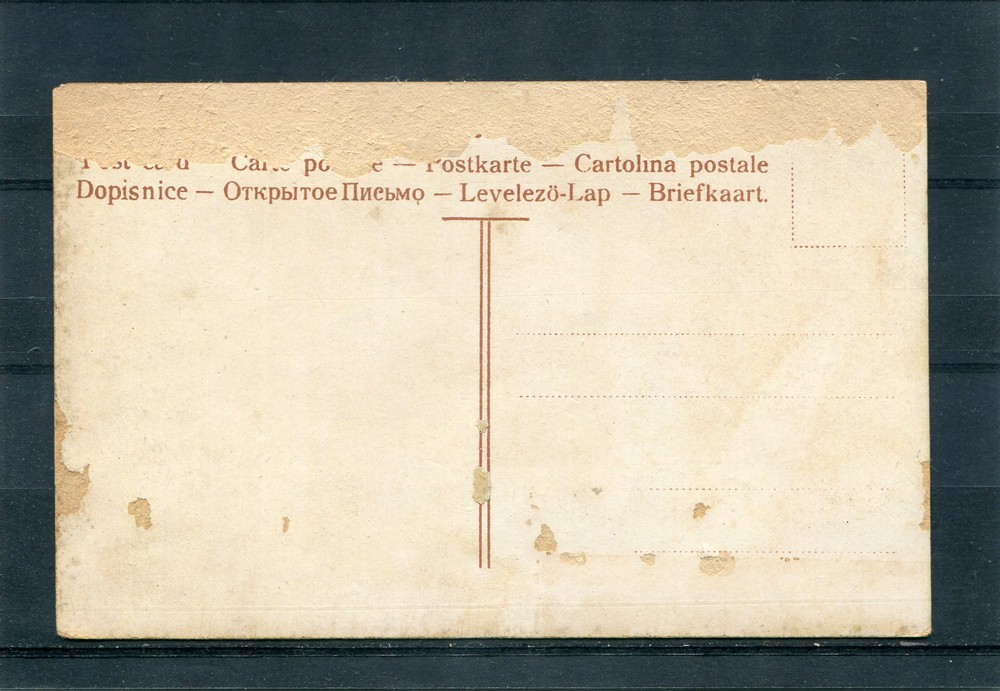 Post card — Carte postale — Postkarte — Cartolina postale
Dopisnice — Открытое Письмо — Levelezö-Lap — Briefkaart.